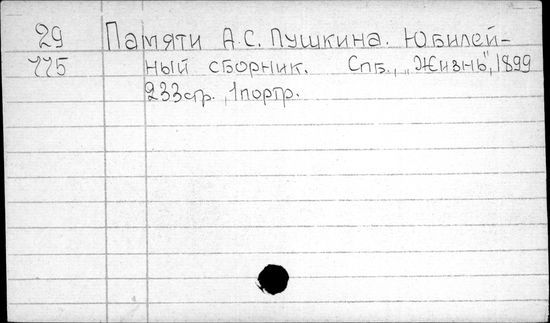 29 Памяти А.С. Пушкина. Юбилей-
775 ный сборник. Спб., „Жизнь", 1899
233стр., 1портр.